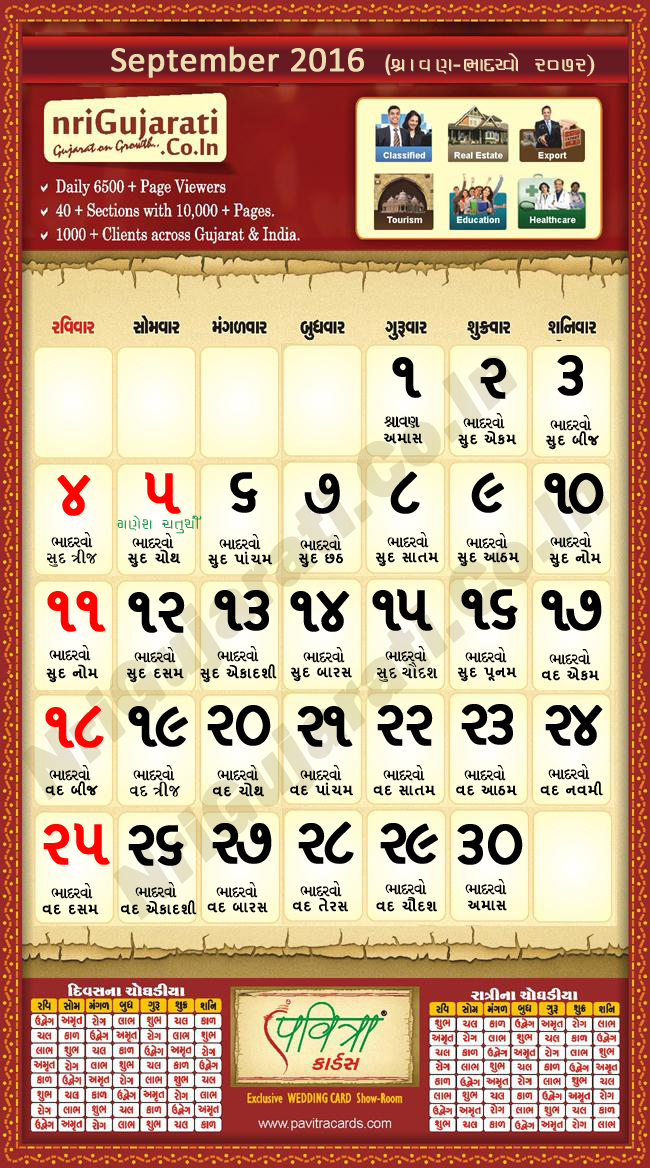 September 2016 (શ્રાવણ-ભાદરવો ૨૦૭૨)
nriGujarati
Gujarat on Growth..
.Co.In
Daily 6500 + Page Viewers
40 + Sections with 10,000 + Pages.
1000 + Clients across Gujarat & India.
Classified Real Estate Export
Tourism Education Healthcare
રવિવાર સોમવાર મંગળવાર બુધવાર ગુરૂવાર શુક્રવાર શનિવાર
૧ ૨ ૩
શ્રાવણ ભાદરવો ભાદરવો
અમાસ સુદ એકમ સુદ બીજ
૪ ૫ ૬ ૭ ૮ ૯ ૧૦
ગણેશ ચતુર્થી
ભાદરવો ભાદરવો ભાદરવો ભાદરવો ભાદરવો ભાદરવો ભાદરવો
સુદ ત્રીજ સુદ ચોથ સુદ પાંચમ સુદ છઠ સુદ સાતમ સુદ આઠમ સુદ નોમ
૧૧ ૧૨ ૧૩ ૧૪ ૧૫ ૧૬ ૧૭
ભાદરવો ભાદરવો ભાદરવો ભાદરવો ભાદરવો ભાદરવો ભાદરવો
સુદ નોમ સુદ દસમ સુદ એકાદશી સુદ બારસ સુદ ચૌદશ સુદ પૂનમ વદ એકમ
૧૮ ૧૯ ૨૦ ૨૧ ૨૨ ૨૩ ૨૪
ભાદરવો ભાદરવો ભાદરવો ભાદરવો ભાદરવો ભાદરવો ભાદરવો
વદ બીજ વદ ત્રીજ વદ ચોથ વદ પાંચમ વદ સાતમ વદ આઠમ વદ નવમી
૨૫ ૨૬ ૨૭ ૨૮ ૨૯ ૩૦
ભાદરવો ભાદરવો ભાદરવો ભાદરવો ભાદરવો ભાદરવો
વદ દસમ વદ એકાદશી વદ બારસ વદ તેરસ વદ ચૌદશ અમાસ
Nrigujarati.co.in
Nrigujarati.co.in
દિવસના ચોઘડીયા
રવિ સોમ મંગળ બુધ ગુરૂ શુક્ર શનિ
ઉદ્વેગ અમૃત રોગ લાભ શુભ ચલ કાળ
ચલ કાળ ઉદ્વેગ અમૃત રોગ લાભ શુભ
લાભ શુભ ચલ કાળ ઉદ્વેગ અમૃત રોગ
અમૃત રોગ લાભ શુભ ચલ કાળ ઉદ્વેગ
કાળ ઉદ્વેગ અમૃત રોગ લાભ શુભ ચલ
શુભ ચલ કાળ ઉદ્વેગ અમૃત રોગ લાભ
રોગ લાભ શુભ ચલ કાળ ઉદ્વેગ અમૃત
ઉદ્વેગ અમૃત રોગ લાભ શુભ ચલ કાળ
પવિત્રા®
કાર્ડસ
Exclusive WEDDING CARD Show-Room
www.pavitracards.com
રાત્રીના ચોઘડીયા
રવિ સોમ મંગળ બુધ ગુરૂ શુક્ર શનિ
શુભ ચલ કાળ ઉદ્વેગ અમૃત રોગ લાભ
અમૃત રોગ લાભ શુભ ચલ કાળ ઉદ્વેગ
ચલ કાળ ઉદ્વેગ અમૃત રોગ લાભ શુભ
રોગ લાભ શુભ ચલ કાળ ઉદ્વેગ અમૃત
કાળ ઉદ્વેગ અમૃત રોગ લાભ શુભ ચલ
લાભ શુભ ચલ કાળ ઉદ્વેગ અમૃત રોગ
ઉદ્વેગ અમૃત રોગ લાભ શુભ ચલ કાળ
શુભ ચલ કાળ ઉદ્વેગ અમૃત રોગ લાભ